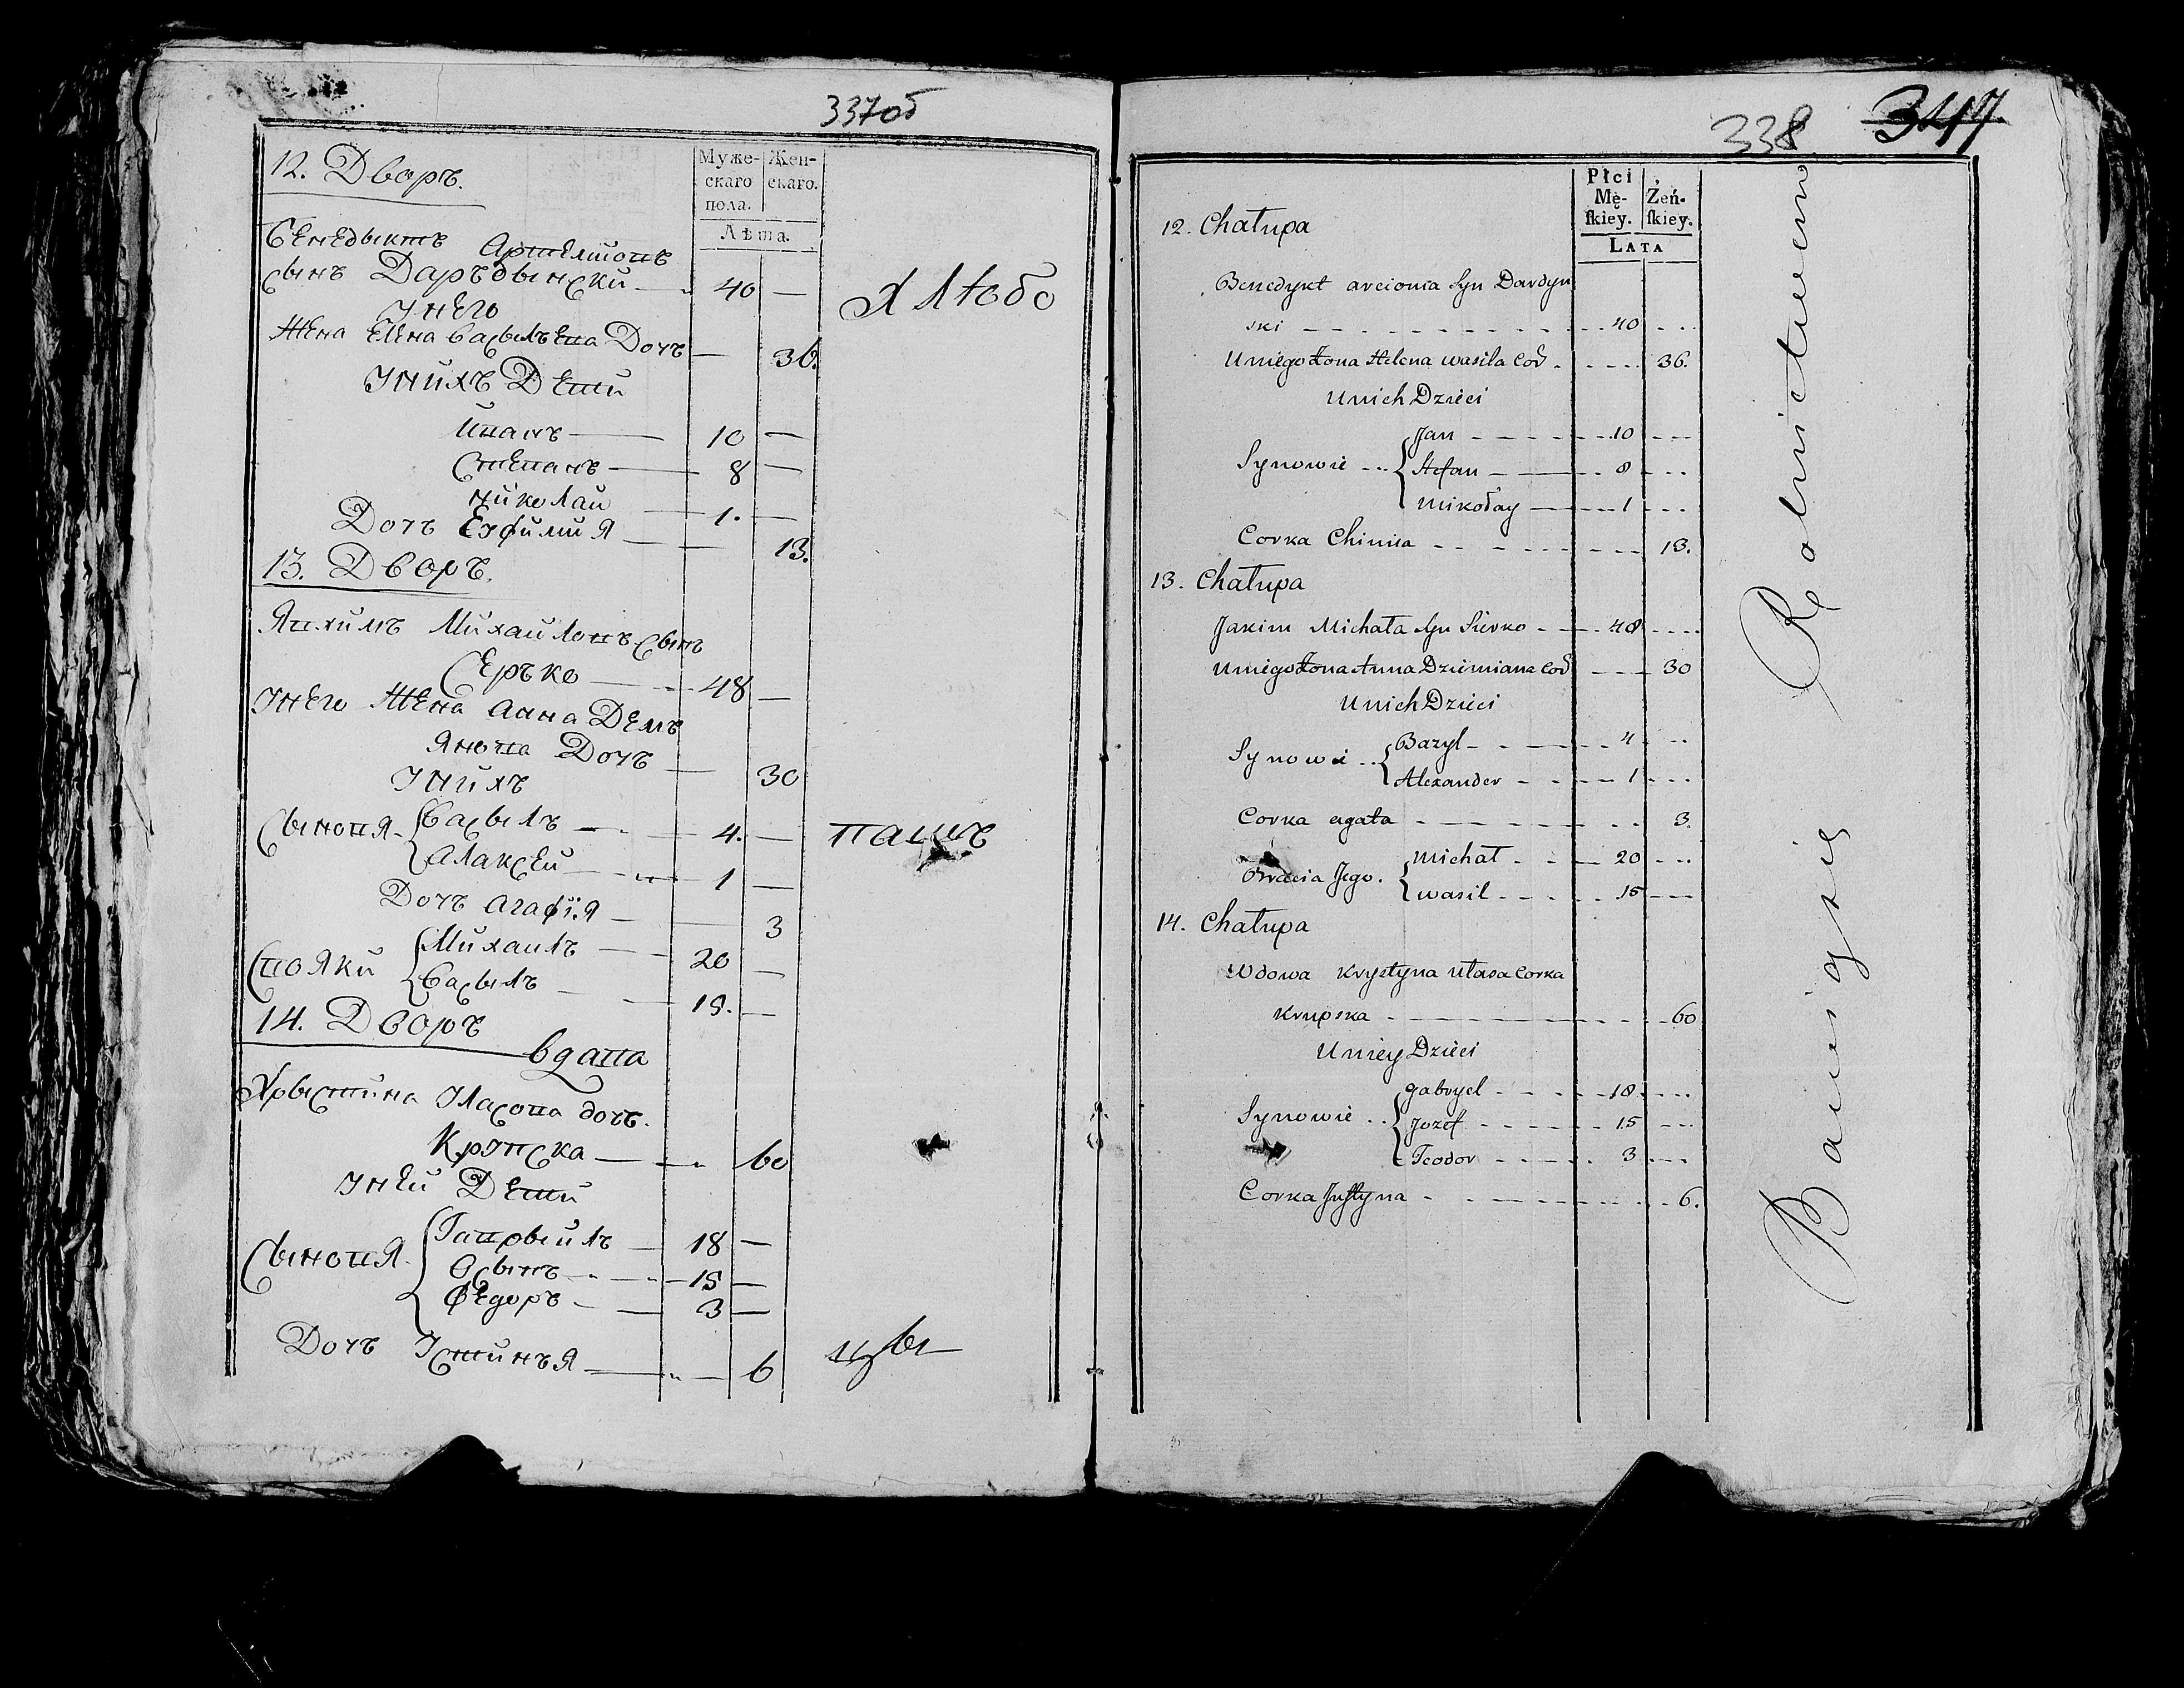 337об
12. Дворъ.
Муже-
скаго
пола.
Жен-
скаго.
Лѣта.
Бенедыктъ Артемповъ
сынъ Даръдынски — 40 —
Хлѣбо
Унего
Жена Елена Васылѣва Дочъ — 36.
Унихъ Дети
Иванъ — 10 —
Степанъ — 8 —
Николаи — 1. —
Дочъ Еуфимия — 13.
13. Дворъ.
Якимъ Михаиловъ сынъ
Серъко — 48 —
Унего Жена Анна Демъ
янова Дочъ — 30
Унихъ
Сыновя Васылъ — 4. —
пашъ
Алаксеи — 1 —
Дочъ Агафія — 3
Свояки Михаилъ — 20 —
Васылъ — 15. —
14. Дворъ
вдова
Хрыстина Уласова дочъ.
Крупска — 60
Унеи Дети
Сыновя Гаврыилъ — 18 —
Осыпъ — 15 —
Федоръ — 3 —
Дочъ Устинъя — 6
цы
338 347
Płci
Mę-
ſkiey.
Żeń-
ſkiey.
LATA
12. Chałupa
Benedykt arcionia Syn Dardyn
ski — 40
Uniego Żona Helena wasila Cod — 36.
Unich Dzieci
Synowie Jan — 10
Stefan — 8
Mikołay — 1
Corka Chimia — 13.
13. Chałupa
Jakim Michała syn Sierko — 48
Uniego Żona Anna Dziemiana Cod — 30
Unich Dzieci
Synowie Bazyl — 4
Alexander — 1
Corka agata — 3.
Bracia Jego. Michał — 20
wasil — 15
14. Chałupa
Wdowa Krystyna Ułasa Corka
Krupska — 60
Uniey Dzieci
Synowie Gabryel — 18
Jozef — 15
Teodor — 3
Corka Juſtyna — 6.
Bawią się Rolnictwem